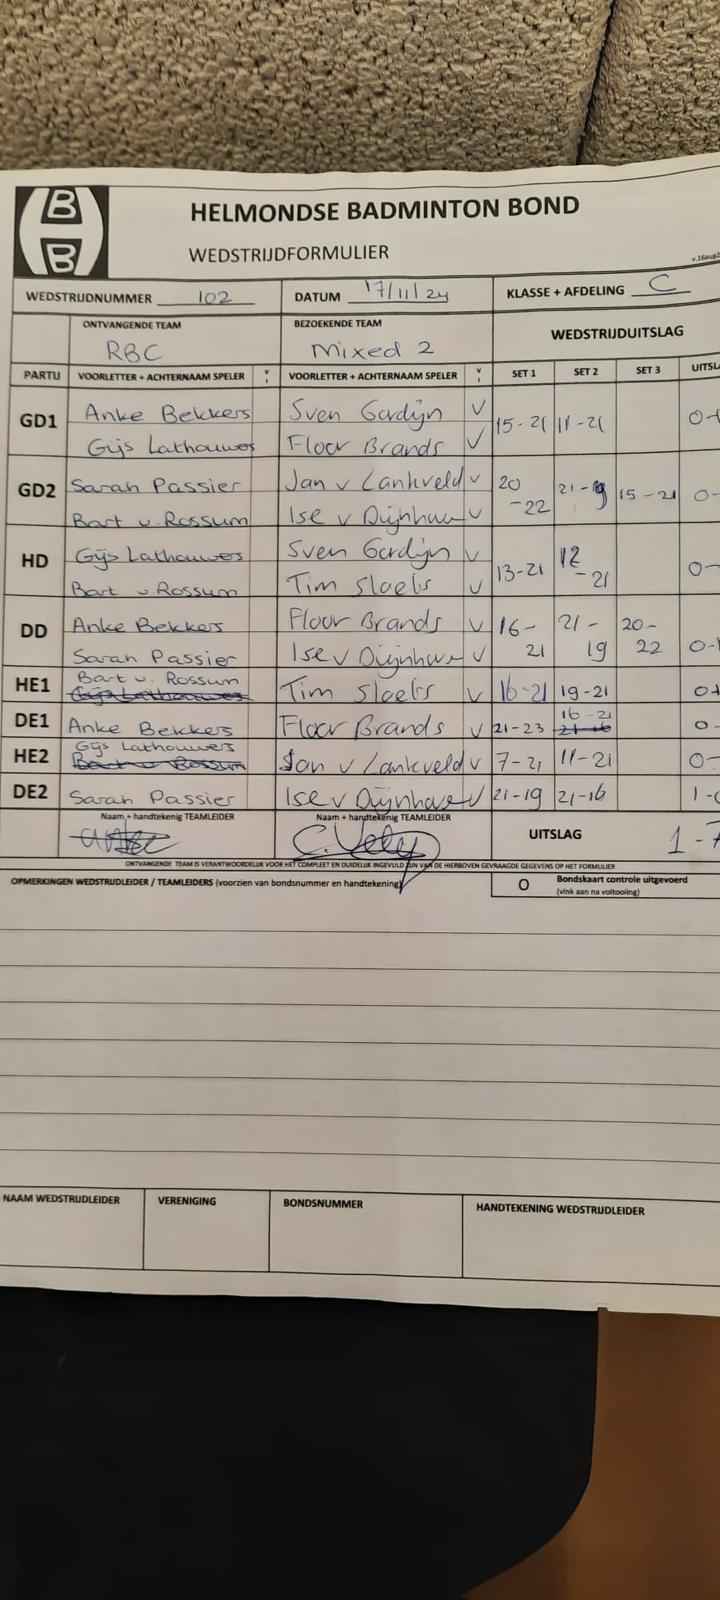 HBB
HELMONDSE BADMINTON BOND
WEDSTRIJDFORMULIER
WEDSTRIJDNUMMER 102 DATUM 17/11/24 KLASSE + AFDELING C
ONTVANGENDE TEAM BEZOEKENDE TEAM WEDSTRIJDUITSLAG
RBC Mixed 2
PARTIJ VOORLETTER + ACHTERNAAM SPELER V VOORLETTER + ACHTERNAAM SPELER V SET 1 SET 2 SET 3
GD1 Anke Bekkers Sven Gordijn V 15-21 11-21
Gijs Lathouwes Floor Brands V
GD2 Sarah Passier Jan v Lankveld V 20-22 21-19 15-21
Bart v. Rossum Ise v Duijnhove V
HD Gijs Lathouwes Sven Gordijn V 13-21 12-21
Bart v Rossum Tim Slaets V
DD Anke Bekkers Floor Brands V 16-21 21-19 20-22
Sarah Passier Ise v Duijnhove V
HE1 Bart v. Rossum Tim Slaets V 16-21 19-21
Gijs Lathouwes
DE1 Anke Bekkers Floor Brands V 21-23 16-21
HE2 Gijs Lathouwes Jan v Lankveld V 7-21 11-21
Bart v Rossum
DE2 Sarah Passier Ise v Duijnhove V 21-19 21-16
Naam + handtekenig TEAMLEIDER Naam + handtekenig TEAMLEIDER UITSLAG 1-7
ONTVANGENDE TEAM IS VERANTWOORDELIJK VOOR HET COMPLEET EN DUIDELIJK INGEVULD ZIJN VAN DE HIERBOVEN GEVRAAGDE GEGEVENS OP HET FORMULIER
OPMERKINGEN WEDSTRIJDLEIDER / TEAMLEIDERS (voorzien van bondsnummer en handtekening) O Bondskaart controle uitgevoerd
(vink aan na voltooiing)
NAAM WEDSTRIJDLEIDER VERENIGING BONDSNUMMER HANDTEKENING WEDSTRIJDLEIDER